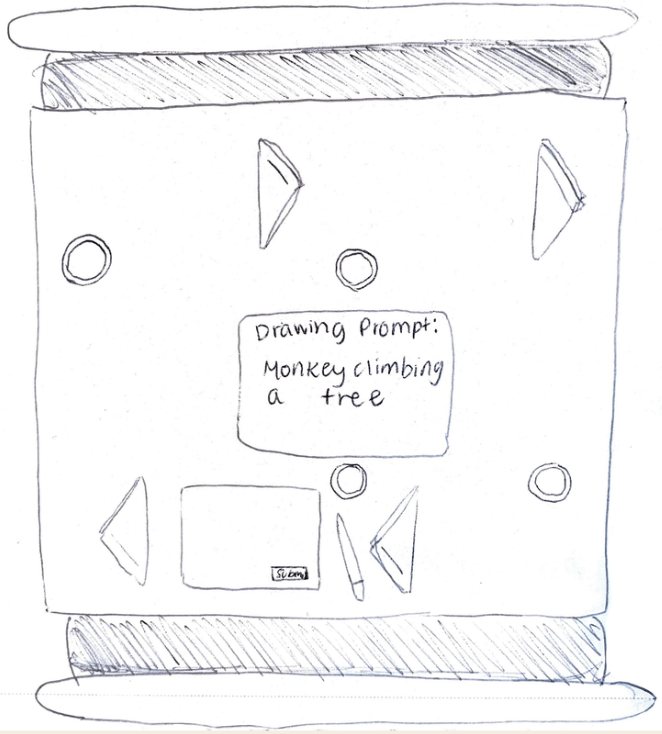 Drawing Prompt:
Monkey climbing
a tree